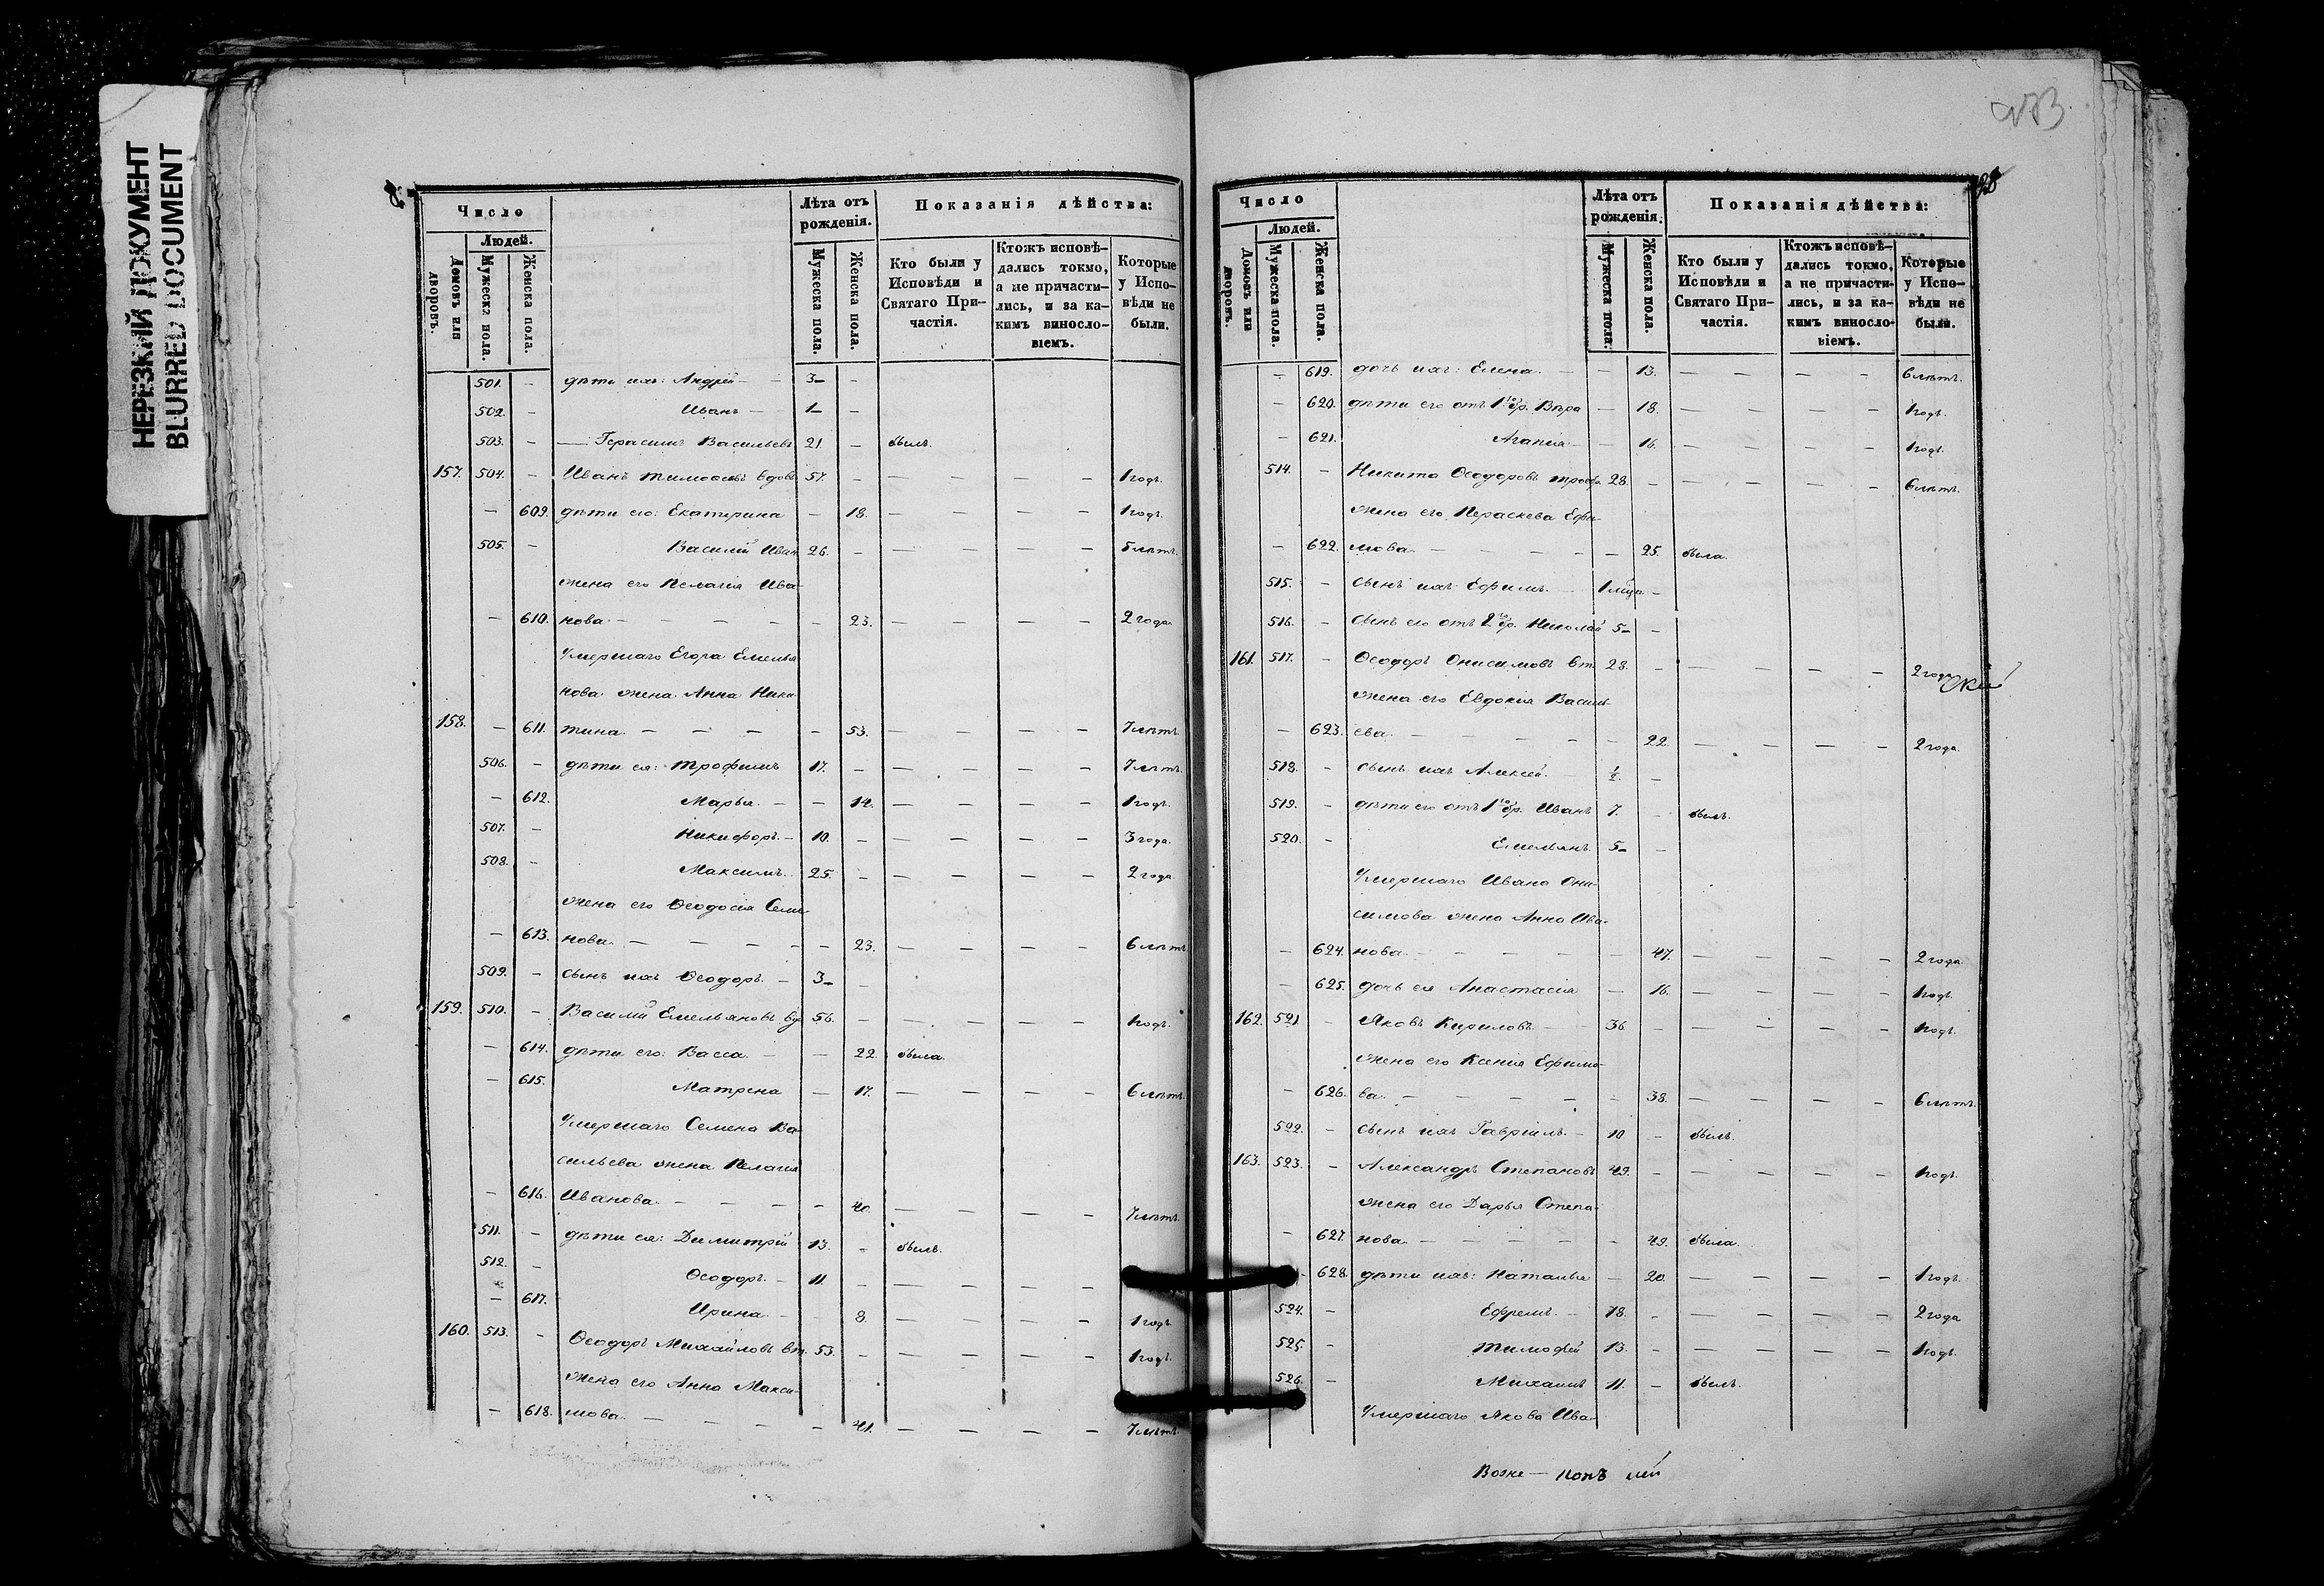 НЕРЕЗКИЙ ДОКУМЕНТ
BLURRED DOCUMENT
Число
Людей.
Домовъ или дворовъ.
Мужеска пола.
Женска пола.
Лѣта отъ рожденія.
Мужеска пола.
Женска пола.
Показанія дѣйства:
Кто были у Исповѣди и Святаго При-частія.
Ктожъ исповѣ-дались токмо, а не причасти-лись, и за ка-кимъ винословіемъ.
Которые у Испо-вѣди не были.
501. - дѣти ихъ: Андрей - - 3 -
502. - Иванъ - 1 -
503. - Герасимъ Васильевъ 21 - былъ.
157. 504. - Иванъ Тимофеевъ вдовъ 57. - - - - - 1 годъ.
- 609. дѣти его: Екатерина - 18. - - - - 1 годъ.
505. - Василій Иван 26. - - - - - 5 лѣтъ.
жена его Пелагія Ива-
- 610. нова - - - - - 23. - - - - 2 года.
Умершаго Егора Емелья
нова жена Анна Ники-
158. - 611. тина. - - - - 53. - - - - 7 лѣтъ
506. - дѣти ея: Трофимъ 17. - - - - - 7 лѣтъ.
- 612. Марья. - - 14. - - - - 1 годъ.
507. - Никифоръ. - 10. - - - - - 3 года.
508. - Максимъ. 25. - - - - - 2 года
жена его Ѳеодосія Семе
- 613. нова. - - - - - 23. - - - - 6 лѣтъ
509. - сынъ ихъ Ѳеодоръ. - 3 -
159. 510. - Василій Емельяновъ вд 56. - - - - - 1 годъ.
- 614. дѣти его: Васса. - - 22. была.
- 615. Матрена - 17. - - - - 6 лѣтъ.
Умершаго Семена Ва-
сильева жена Пелагія
- 616. Иванова. - - - - 40. - - - - 7 лѣтъ.
511. - дѣти ея: Димитрій 13. - былъ.
512. - Ѳеодоръ. - 11. - - - -
- 617. Ирина. - 8. - - - - 1 годъ.
160. 513. - Ѳеодоръ Михайловъ вт. 53. - - - - - 1 годъ.
жена его Анна Макси-
- 618. мова. - - - - - 41. - - - - 7 лѣтъ.
28
Число
Людей.
Домовъ или дворовъ.
Мужеска пола.
Женска пола.
Лѣта отъ рожденія.
Мужеска пола.
Женска пола.
Показанія дѣйства:
Кто были у Исповѣди и Святаго При-частія.
Ктожъ исповѣ-дались токмо, а не причасти-лись, и за ка-кимъ винословіемъ.
Которые у Испо-вѣди не были.
- 619. дочь ихъ: Елена. - - 13. - - - - 6 лѣтъ.
- 620. дѣти его отъ 1го бр. Вѣра - 18. - - - - 1 годъ.
- 621. Агапія - - 16. - - - - 1 годъ.
514. - Никита Ѳеодоровъ 28. - - - - - 6 лѣтъ.
жена его Параскева Ефи-
- 622. мова. - - - - - 25. была.
515. - сынъ ихъ Ефимъ. - 1 мца. -
516. - сынъ его отъ 2го бр. Николай 5 -
161. 517. - Ѳеодоръ Онисимовъ вт. 28. - - - - - 2 года
кій
жена его Евдокія Василь-
- 623. ева. - - - - - 22. - - - - 2 года.
518. - сынъ ихъ Алексей. - ½. -
519. - дѣти его отъ 1го бр. Иванъ 7. - былъ.
520. - Емельянъ. 5 -
Умершаго Ивана Они-
симова жена Анна Ива-
- 624. нова. - - - - - 47. - - - - 2 года.
- 625. дочь ея Анастасія - 16. - - - - 1 годъ.
162. 521 - Яковъ Кириловъ - - 36 - - - - - 1 годъ.
жена его Ксенія Ефимо-
- 626. ва. - - - - - 38. - - - - 6 лѣтъ.
522. - сынъ ихъ Гавріилъ. - 10 - былъ.
163. 523. - Александръ Степановъ 49. - - - - - 1 годъ.
жена его Дарья Степа-
- 627. нова. - - - - - 49. была.
- 628. дѣти ихъ: Наталья - 20. - - - - 1 годъ.
524. - Ефремъ. - 18. - - - - - 2 года
525. - Тимофей 13. - - - - - 1 годъ.
526. - Михаилъ 11. - былъ.
Умершаго Якова Ива-